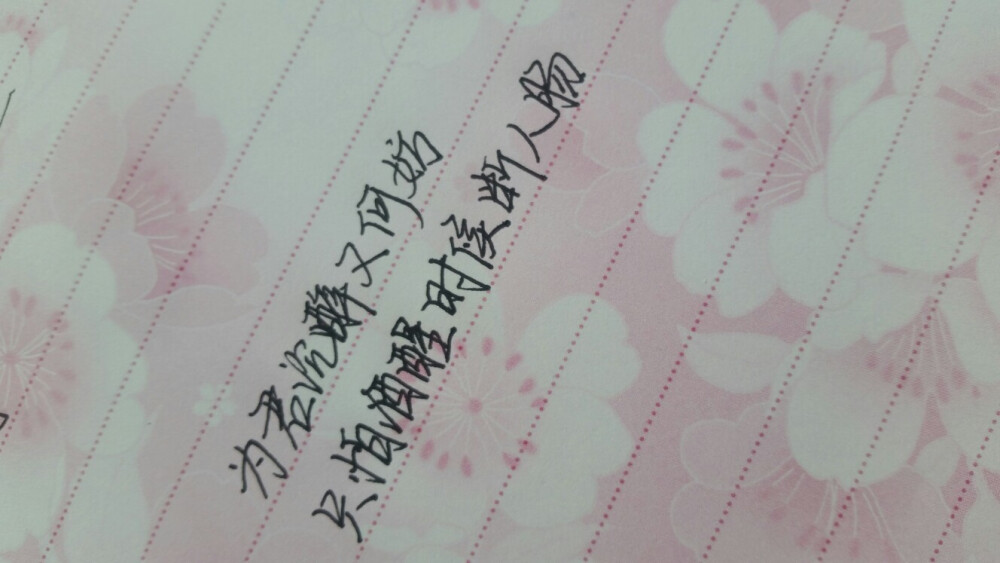 为君沉醉又何妨
只怕酒醒时候断人肠